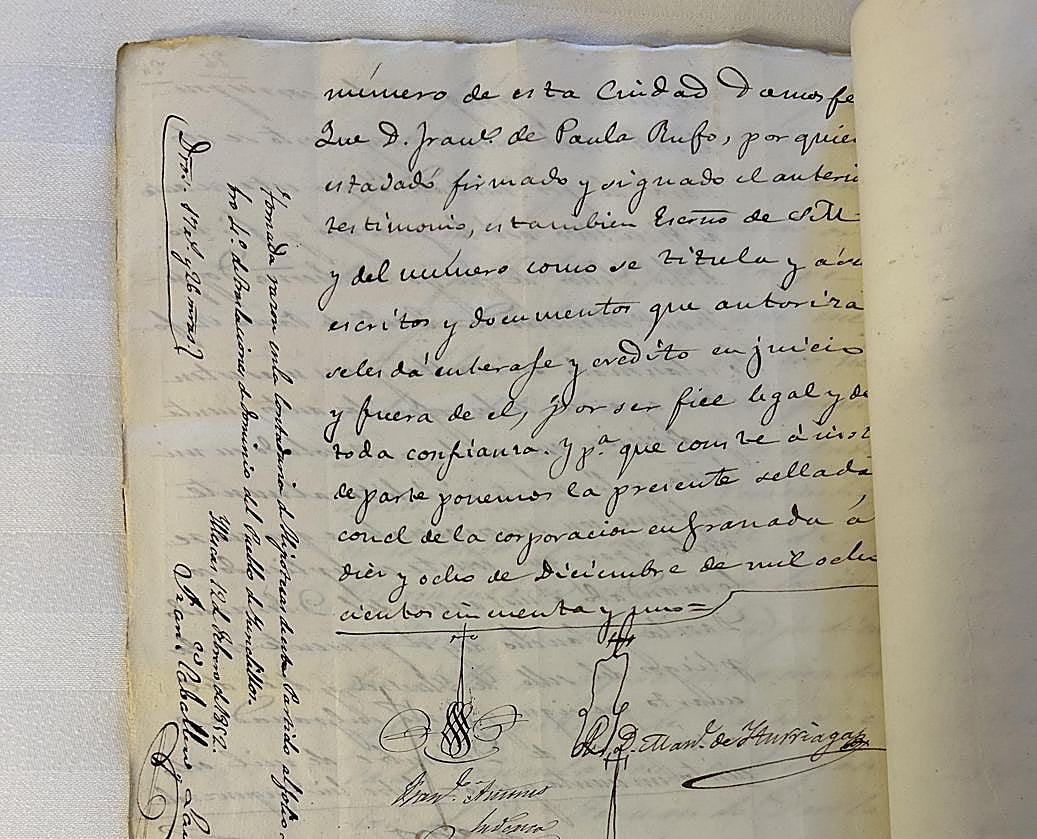 número de esta Ciudad Damosfe
Que D. Franco. de Paula Rufo, por quie
estadadó firmado y signado el anteri
testimonio, estambien Escrno de S.M
y del número como se titula y á su
escritos y documentos que autoriza
seles dá enterafe y credito en juicio
y fuera de el, por ser fiel legal y de
toda confianza. Y pa. que conste á inst
de parte ponemos la presente sellada
conel de la corporacion enGranada á
diez y ocho de Diciembre de mil ocho
cientos cincuenta y uno=
D. Man. de Yturriaga
Tomada razon enla Contaduria d Hipotecas deeste Partido alfolio
bro 4.o detraslaciones d dominio del Pueblo d
Illescas 12 d Febrero d 1852.
Fran. Caballero
Dros. 17 rs. y 26 mrs.